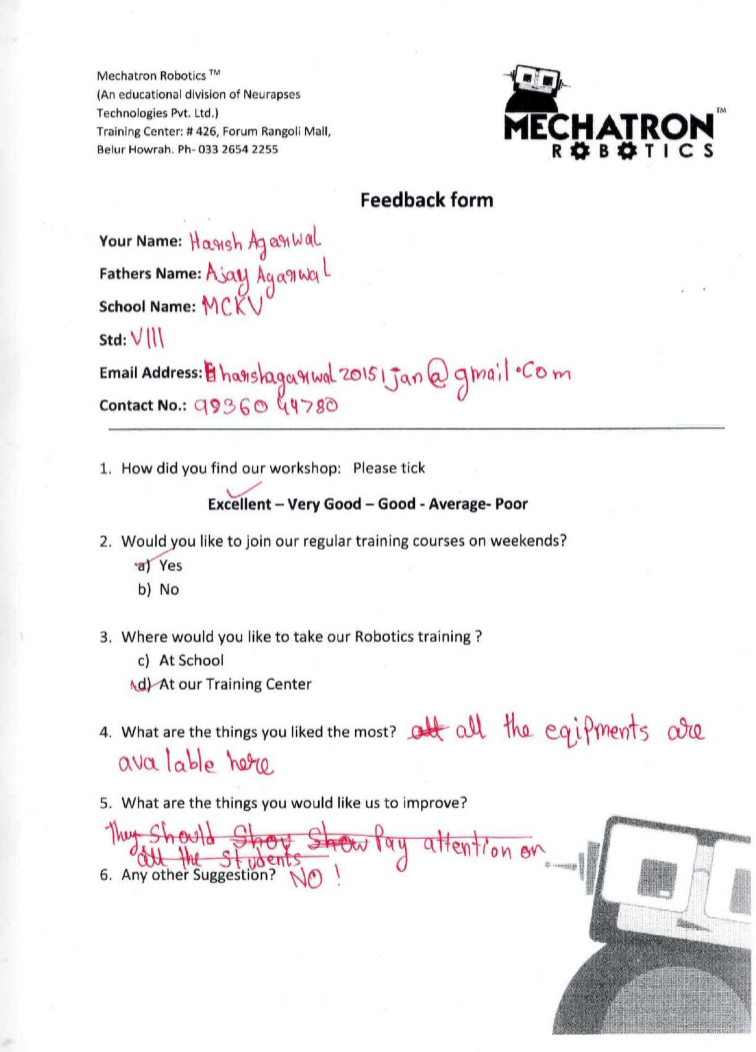 Mechatron Robotics ™
(An educational division of Neurapses
Technologies Pvt. Ltd.)
Training Center: # 426, Forum Rangoli Mall,
Belur Howrah. Ph- 033 2654 2255
MECHATRON™
ROBOTICS
Feedback form
Your Name: Harish Agarwal
Fathers Name: Ajay Agarwal
School Name: MCKV
Std: VIII
Email Address: harshagarwal20151jan@gmail.com
Contact No.: 9936044780
1. How did you find our workshop: Please tick
Excellent – Very Good – Good - Average- Poor
2. Would you like to join our regular training courses on weekends?
a) Yes
b) No
3. Where would you like to take our Robotics training ?
c) At School
d) At our Training Center
4. What are the things you liked the most? all all the eqipments are
avalable here
5. What are the things you would like us to improve?
They Should Shoy Show Pay attention on
all the students
6. Any other Suggestion? NO !